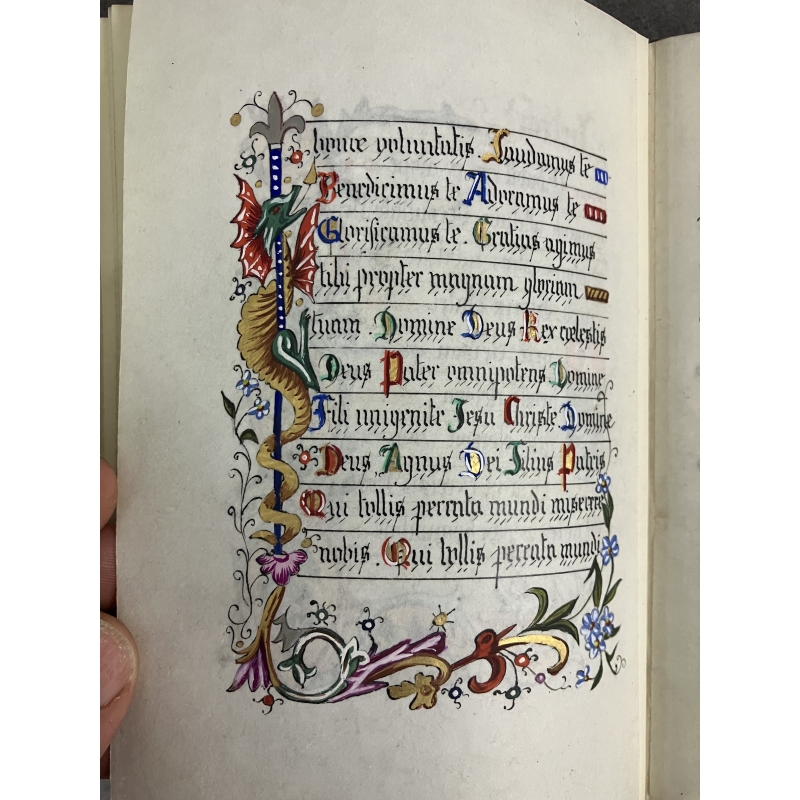 bonæ voluntatis Laudamus te
Benedicimus te Adoramus te
Glorificamus te. Gratias agimus
tibi propter magnam gloriam
tuam Domine Deus Rex cœlestis
Deus Pater omnipotens Domine
Fili unigenite Jesu Christe Domine
Deus Agnus Dei Filius Patris
Qui tollis peccata mundi miserere
nobis. Qui tollis peccata mundi